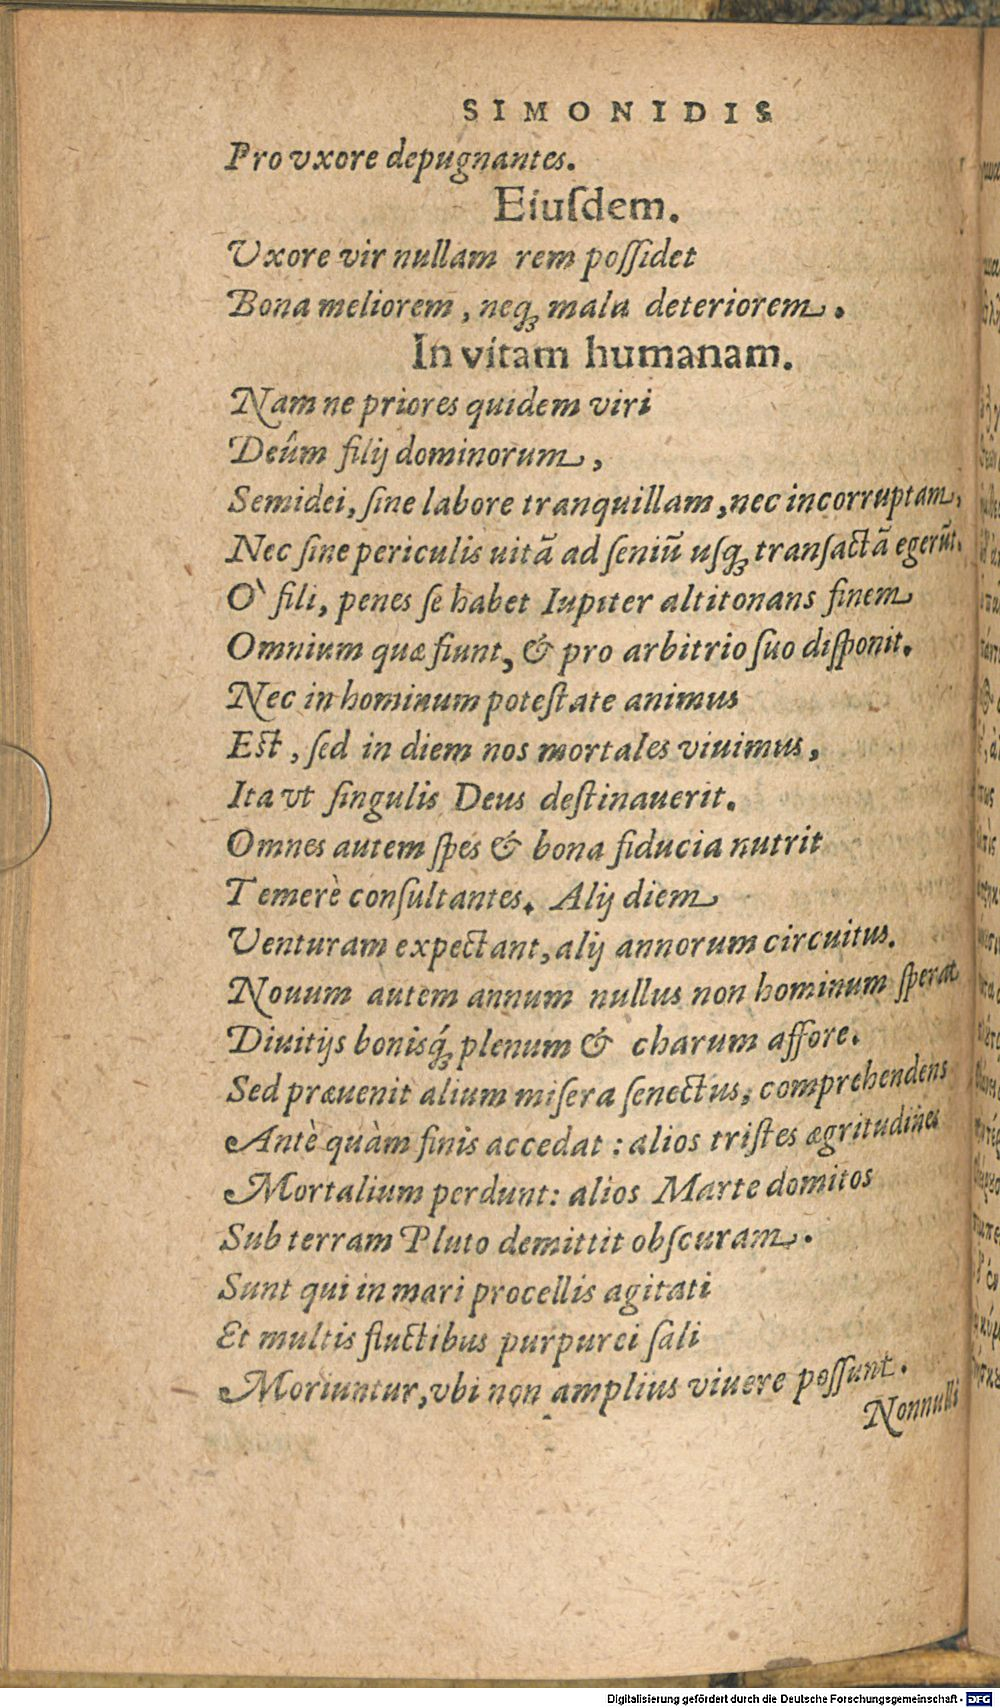 SIMONIDIS
Pro vxore depugnantes.
Eiuſdem.
Vxore vir nullam rem poſſidet
Bona meliorem, neqꝫ mala deteriorem.
In vitam humanam.
Nam ne priores quidem viri
Deûm filij dominorum,
Semidei, ſine labore tranquillam, nec incorruptam,
Nec ſine periculis uitã ad ſeniũ uſqꝫ tranſactã egerũt.
O` fili, penes ſe habet Iupiter altitonans finem
Omnium quæ fiunt, & pro arbitrio ſuo diſponit.
Nec in hominum poteſtate animus
Est, ſed in diem nos mortales viuimus,
Ita vt ſingulis Deus deſtinauerit.
Omnes autem ſpes & bona fiducia nutrit
Temerè conſultantes. Alij diem
Venturam expectant, alij annorum circuitus.
Nouum autem annum nullus non hominum ſperat
Diuitijs bonisq́ꝫ plenum & charum affore.
Sed præuenit alium miſera ſenectus, comprehendens
Antè quàm finis accedat: alios triſtes ægritudines
Mortalium perdunt: alios Marte domitos
Sub terram Pluto demittit obſcuram.
Sunt qui in mari procellis agitati
Et multis fluctibus purpurei ſali
Moriuntur, vbi non amplius viuere poſſunt.
Nonnulli
Digitalisierung gefördert durch die Deutsche Forschungsgemeinschaft - DFG